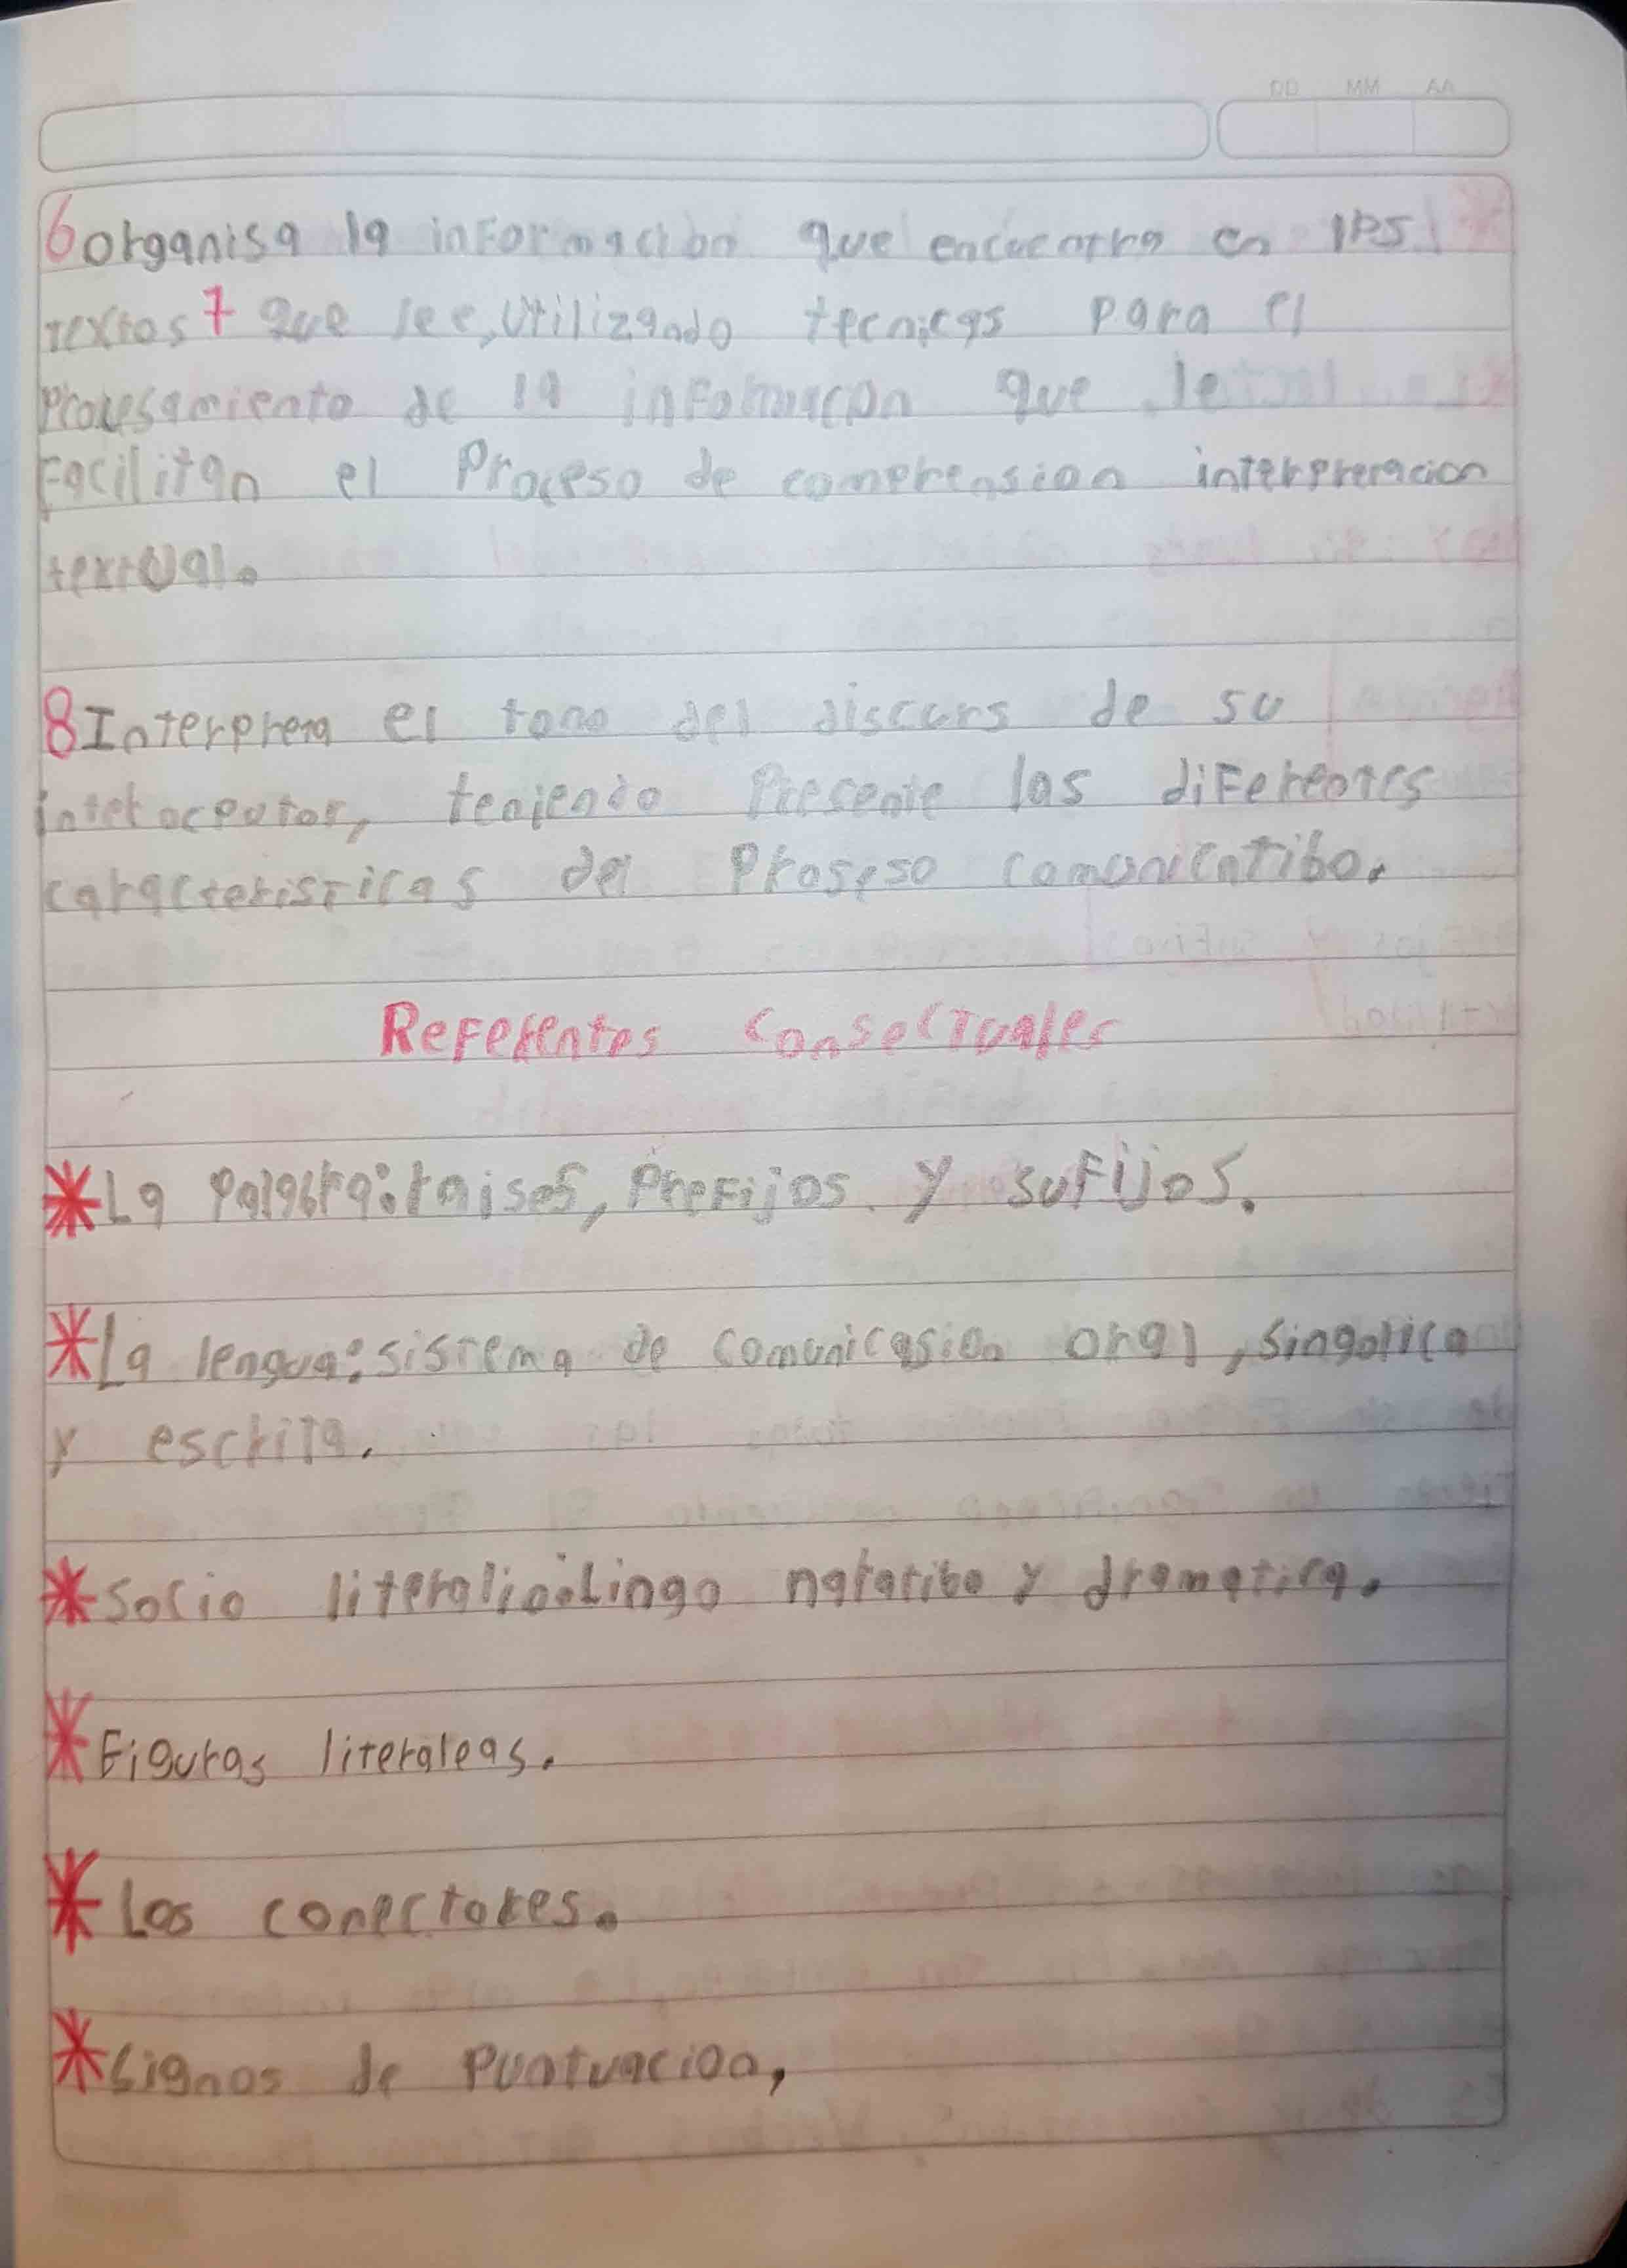 DD MM AA
6 organisa la informacion que encuentra en los
textos 7 que lee, utilizando tecnicas para el
procesamiento de la informacion que le
Facilitan el Proceso de comprension interpretacion
textual.
8 Interpreta el tono del discurs de su
interocutor, teniendo Presente las diferentes
caracteristicas del Proseso comunicatibo.
Referentes Consectuales
*La Palabra: raises, Prefijos y sufijos.
*La lengua: sistema de comunicasion oral, singolica
y escrita.
*Socio literalio: Lingo naratibo y dramatica.
*Figuras literaleas.
*Los conectores.
*Signos de Puntuacion,